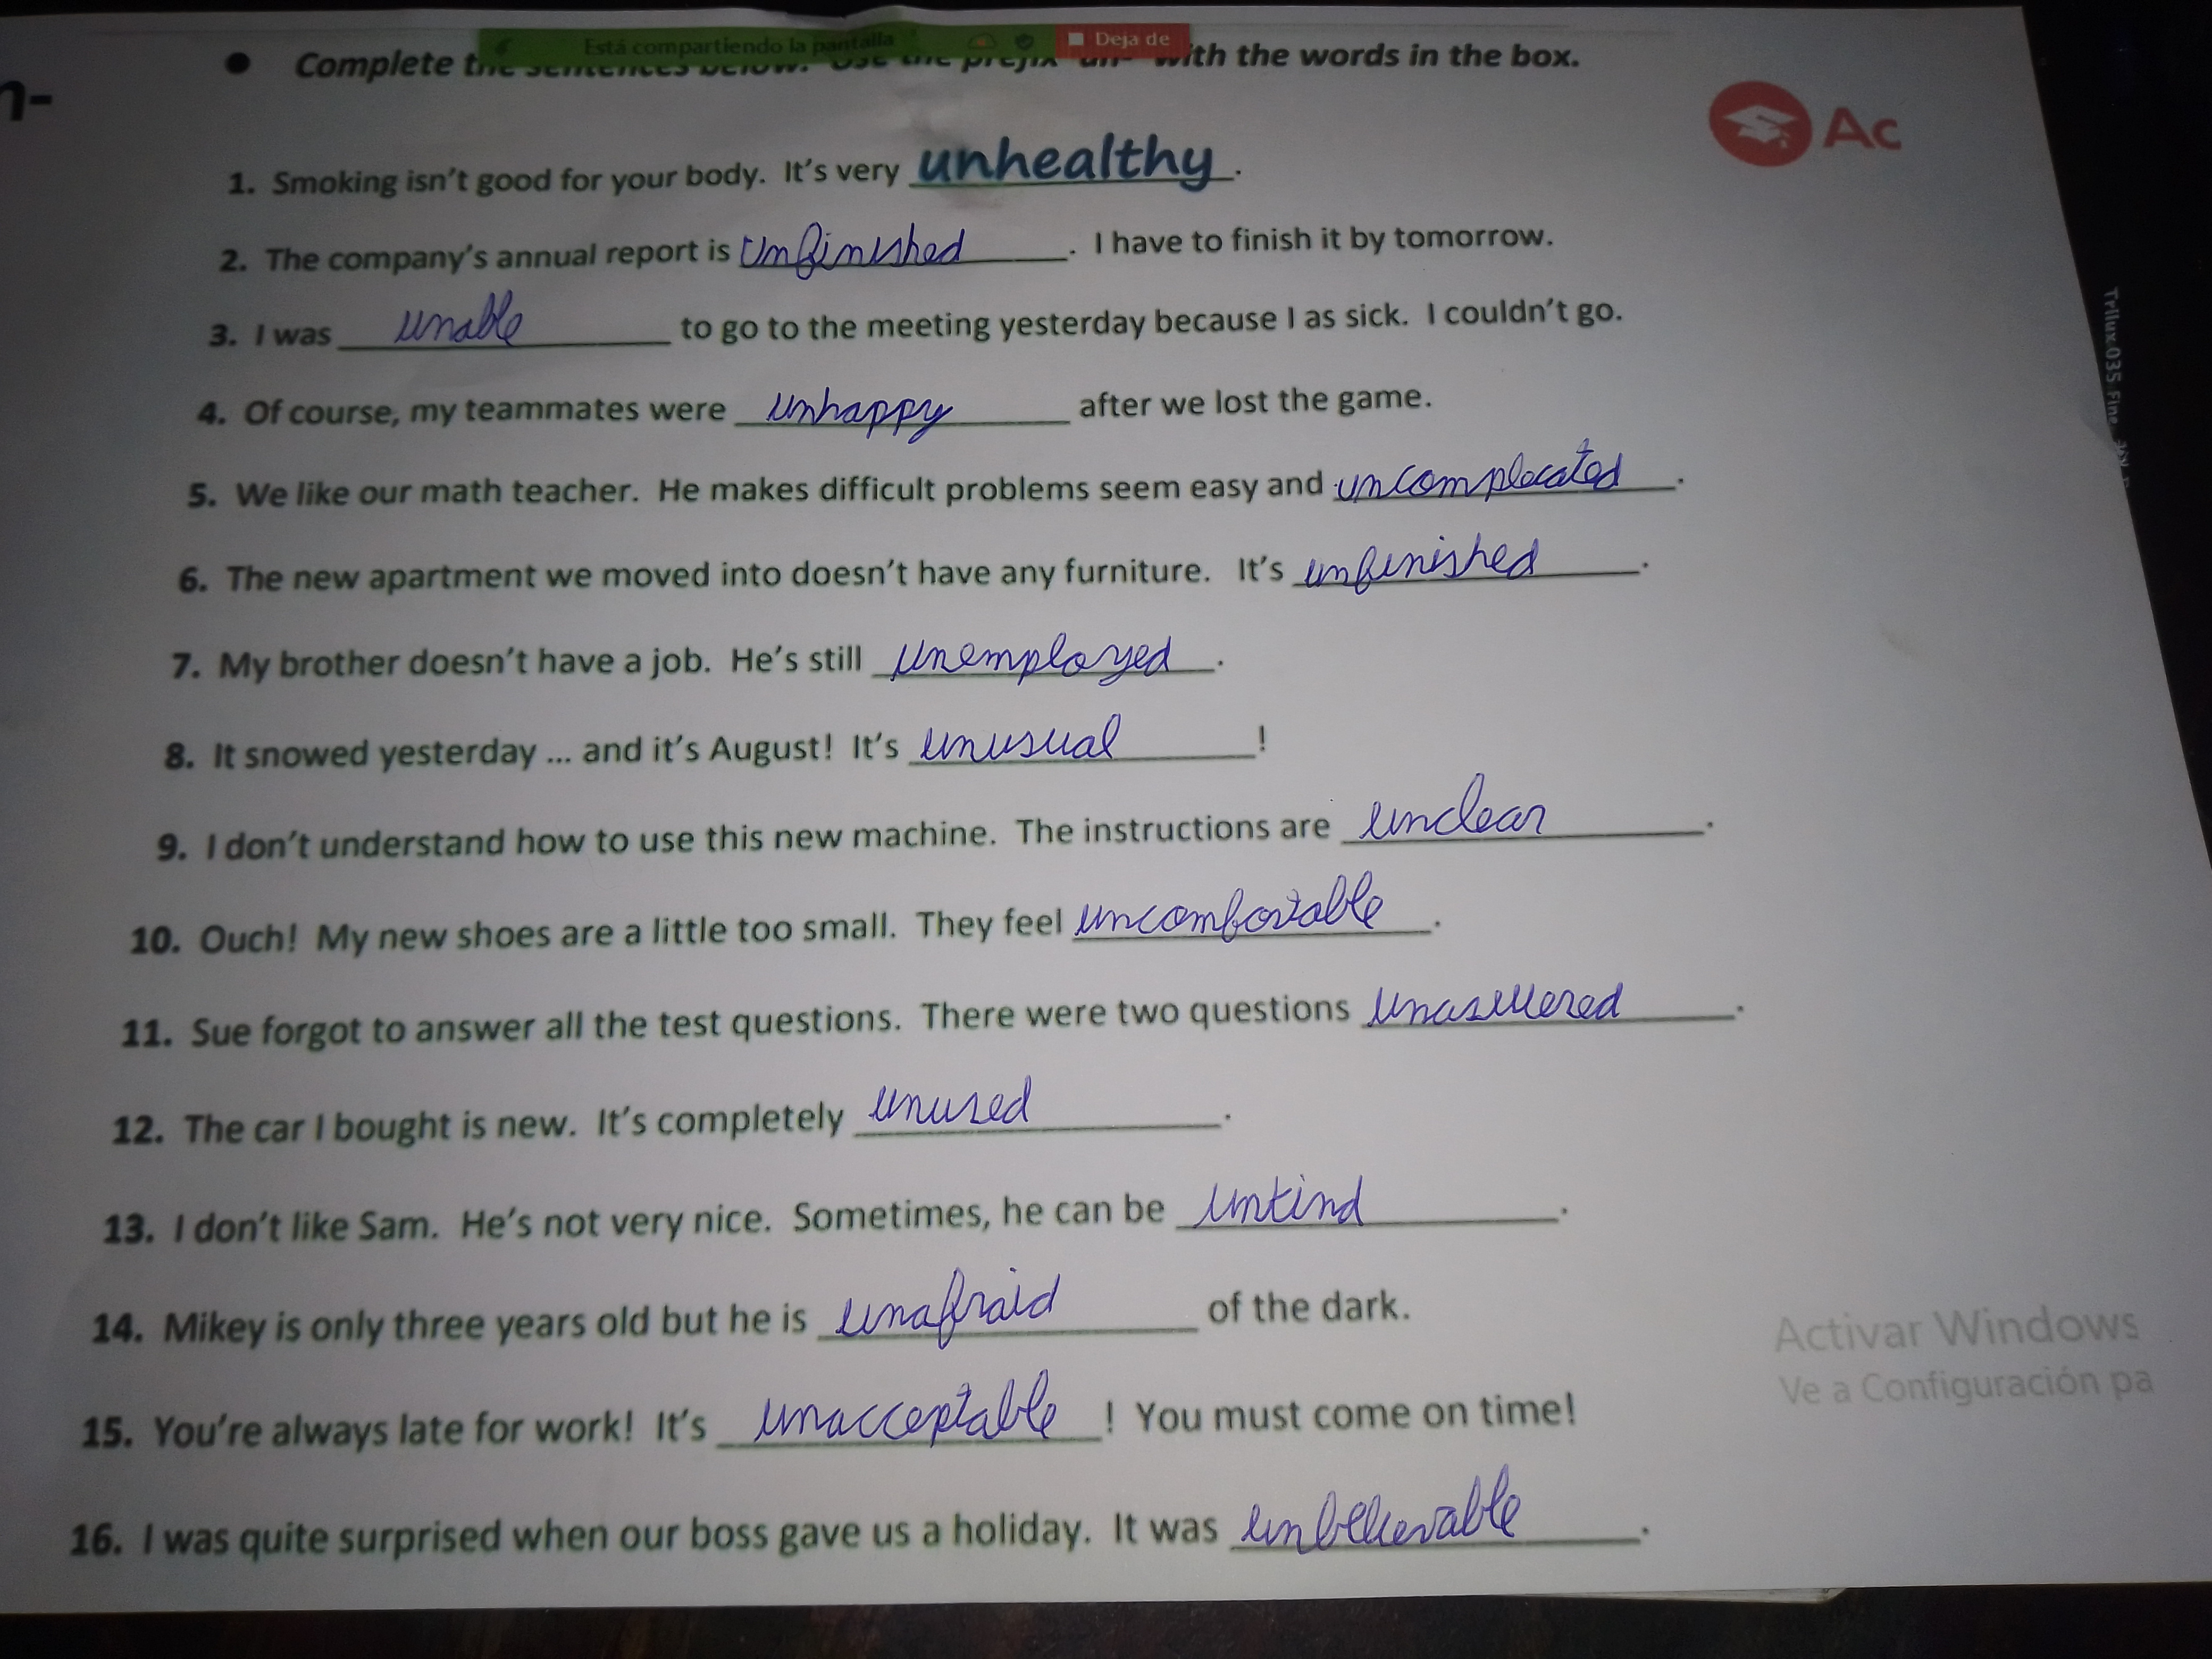 Está compartiendo la pantalla Deja de
• Complete the sentences below. Use the prefix "un-" with the words in the box.
n-
Ac
1. Smoking isn't good for your body. It's very unhealthy.
2. The company's annual report is Unfinished. I have to finish it by tomorrow.
3. I was unable to go to the meeting yesterday because I as sick. I couldn't go.
4. Of course, my teammates were unhappy after we lost the game.
5. We like our math teacher. He makes difficult problems seem easy and uncomplecated.
6. The new apartment we moved into doesn't have any furniture. It's unfinished.
7. My brother doesn't have a job. He's still unemployed.
8. It snowed yesterday ... and it's August! It's unusual!
9. I don't understand how to use this new machine. The instructions are unclear.
10. Ouch! My new shoes are a little too small. They feel uncomfortable.
11. Sue forgot to answer all the test questions. There were two questions unaswered.
12. The car I bought is new. It's completely unused.
13. I don't like Sam. He's not very nice. Sometimes, he can be unkind.
14. Mikey is only three years old but he is unafraid of the dark.
15. You're always late for work! It's unacceptable! You must come on time!
16. I was quite surprised when our boss gave us a holiday. It was unbelievable.
Activar Windows
Ve a Configuración pa
Trilux 035 Fine